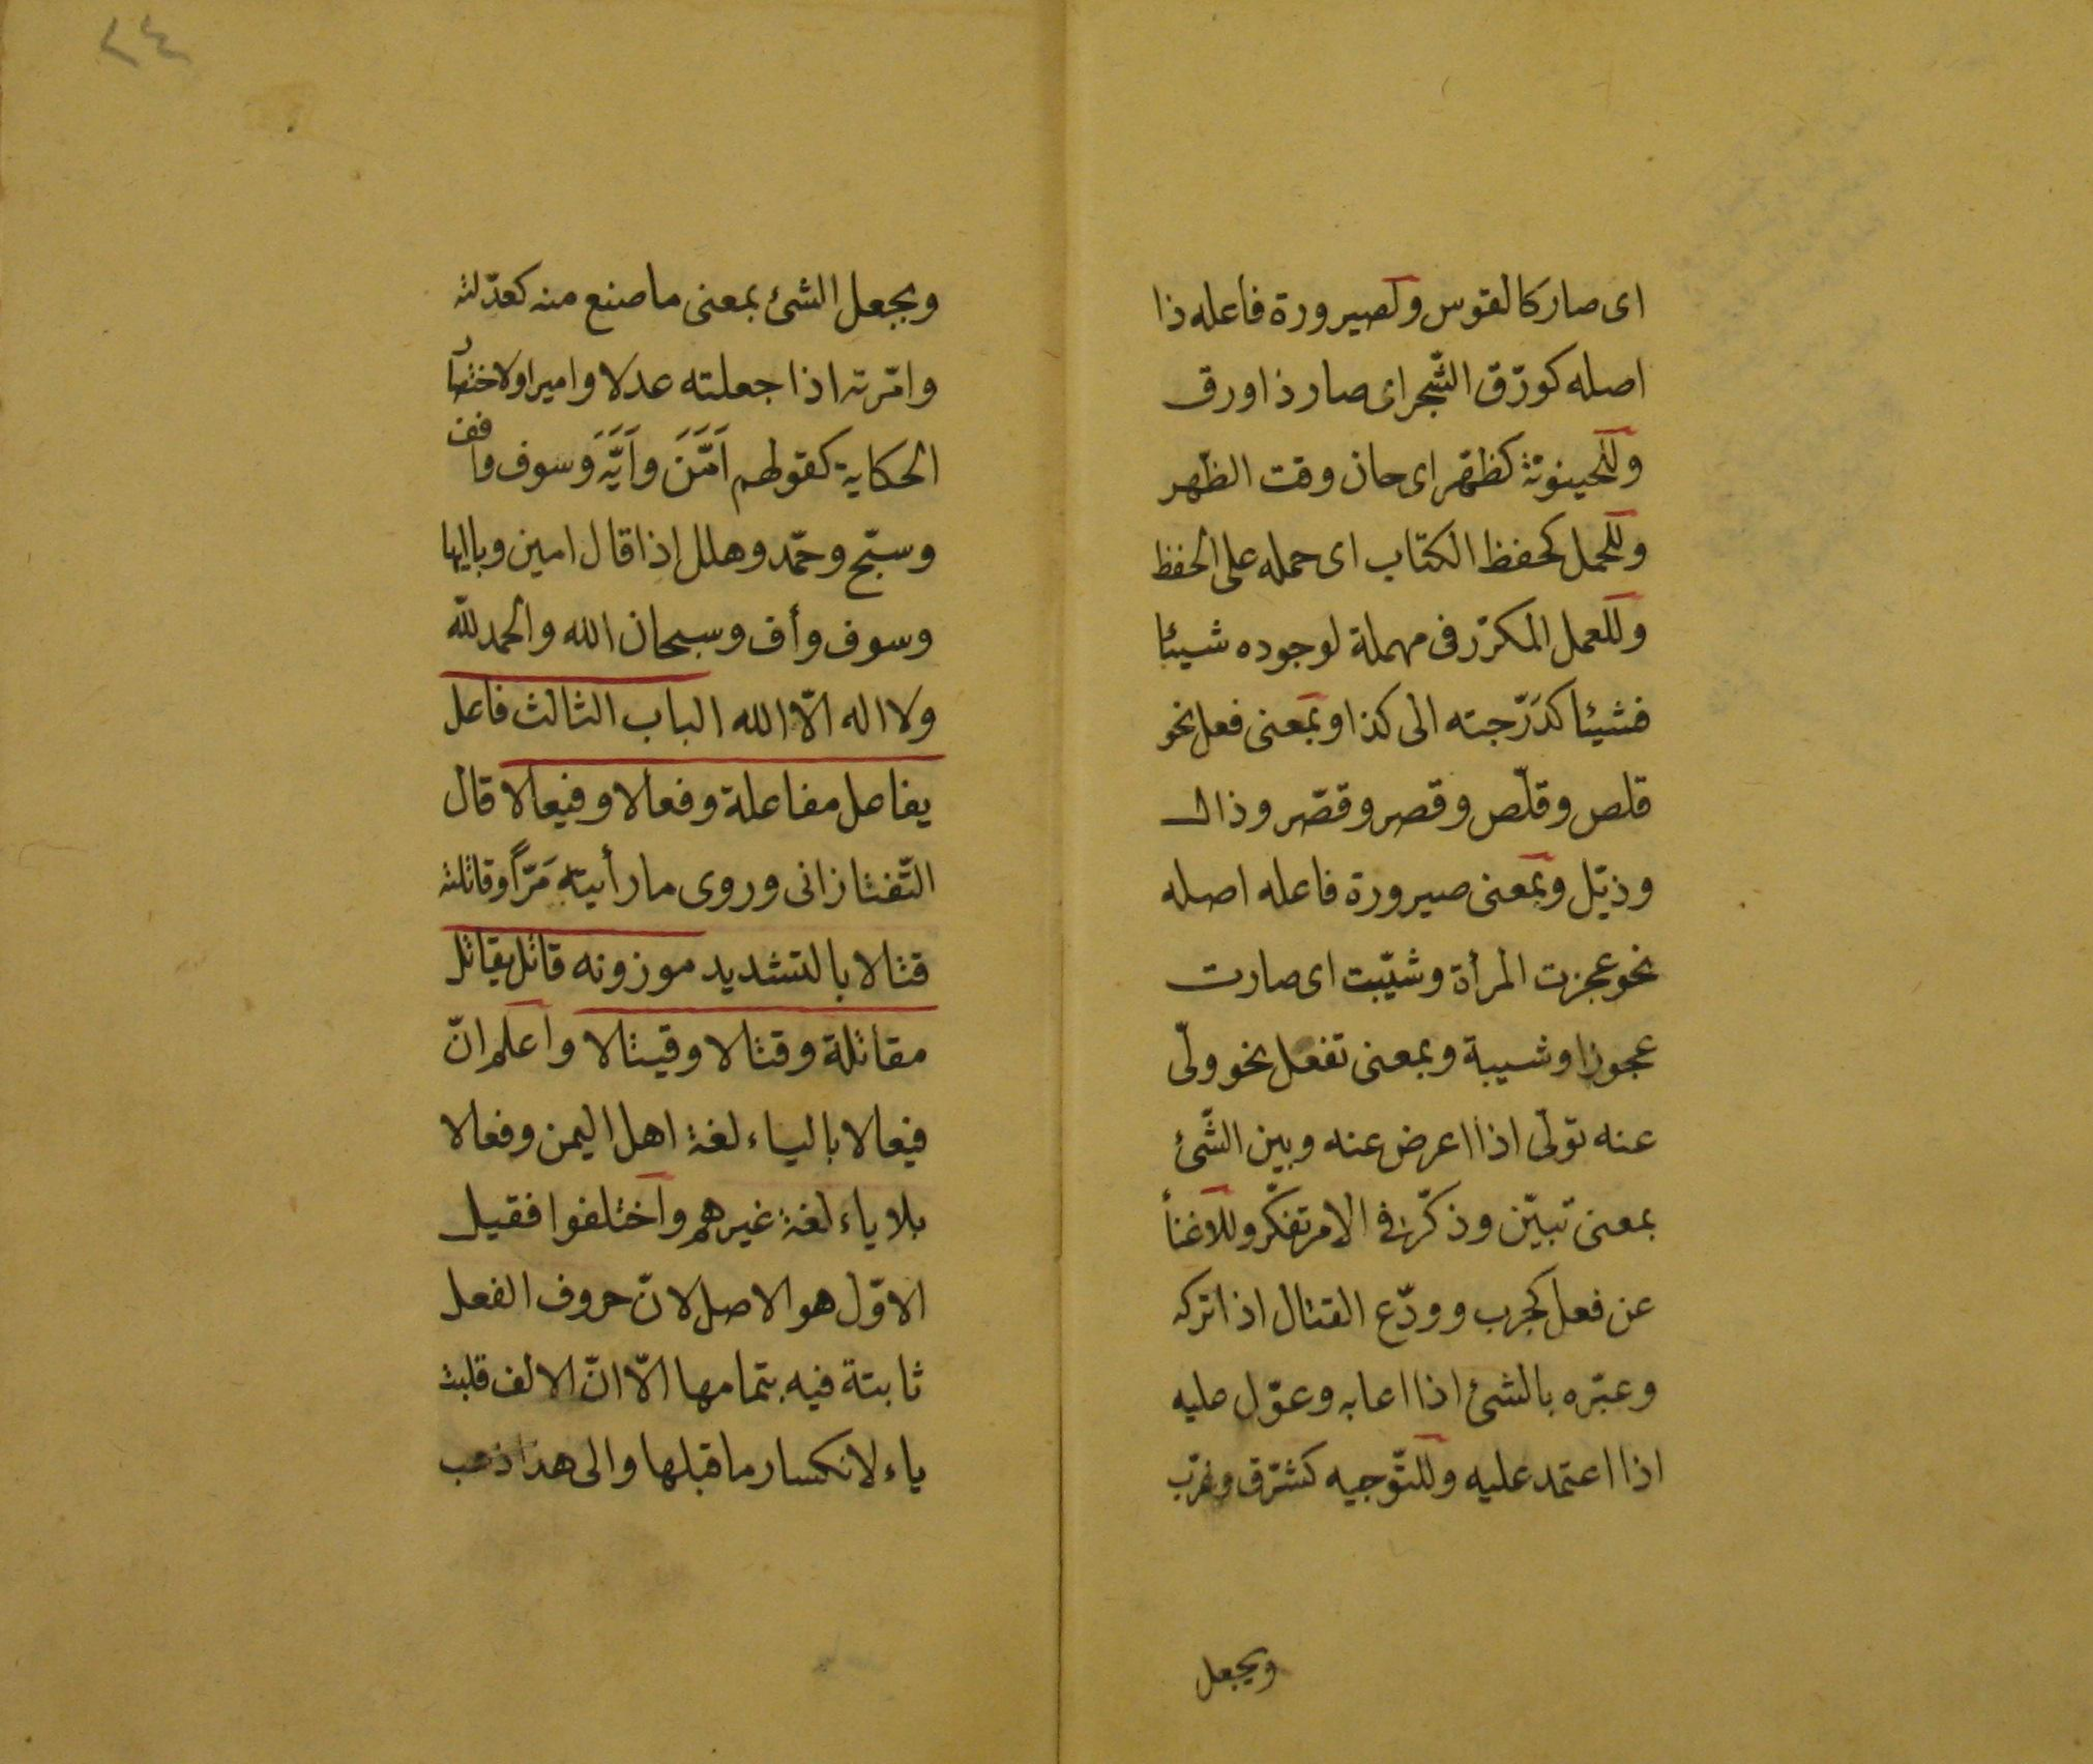 اى صار كالقوس ولصيرورة فاعله ذا
اصله كورّق الشّجر اى صار ذا ورق
وللحينونة كظهّر اى حان وقت الظهر
وللحمل كحفظ الكتاب اى حمله على الحفظ
وللعمل المكرّر فى مهملة لوجوده شيئا
فشيئا كدَرّجته الى كذا وبمعنى فعل نحو
قلص وقلّص وقصر وقصّر وذال
وذيّل وبمعنى صيرورة فاعله اصله
نحو عجزت المرأة وشيّبت اى صارت
عجوزا وشيبة وبمعنى تفعل نحو ولّى
عنه تولّى اذا اعرض عنه وبين الشّئ
بمعنى تبيّن وذكّر فى الامر تفكّر وللاغنأ
عن فعل كجرب وودّع القتال اذا تركه
وعيّره بالشئ اذا اعابه وعوّل عليه
اذا اعتمد عليه وللتّوجيه كشرّق وغرّب
ويجعل
ويجعل الشئ بمعنى ما صنع منه كعدّلته
وامّرته اذا جعلته عدلا واميرا ولاختصار
الحكاية كقولهم اَمَّنَ واَيَّهَ وَسوف وافف
وسبّح وحمّد وهلل إذا قال امين وياايها
وسوف وأف وسبحان الله والحمد للّه
ولا اله الّا الله الباب الثالث فاعل
يفاعل مفاعلة وفعالا وفيعالا قال
التّفتازانى وروى ما رأيته مَرّاً وقاتلته
قتالا بالتشديد موزونه قاتل يقاتل
مقاتلة وقتالا وقيتالا واعلم انّ
فيعالا بالياء لغة اهل اليمن وفعالا
بلا ياء لغة غيرهم واختلفوا فقيل
الاوّل هو الاصل لانّ حروف الفعل
ثابتة فيه بتمامها الّا انّ الالف قلبت
ياء لانكسار ما قبلها والى هذا ذهب
٢٤